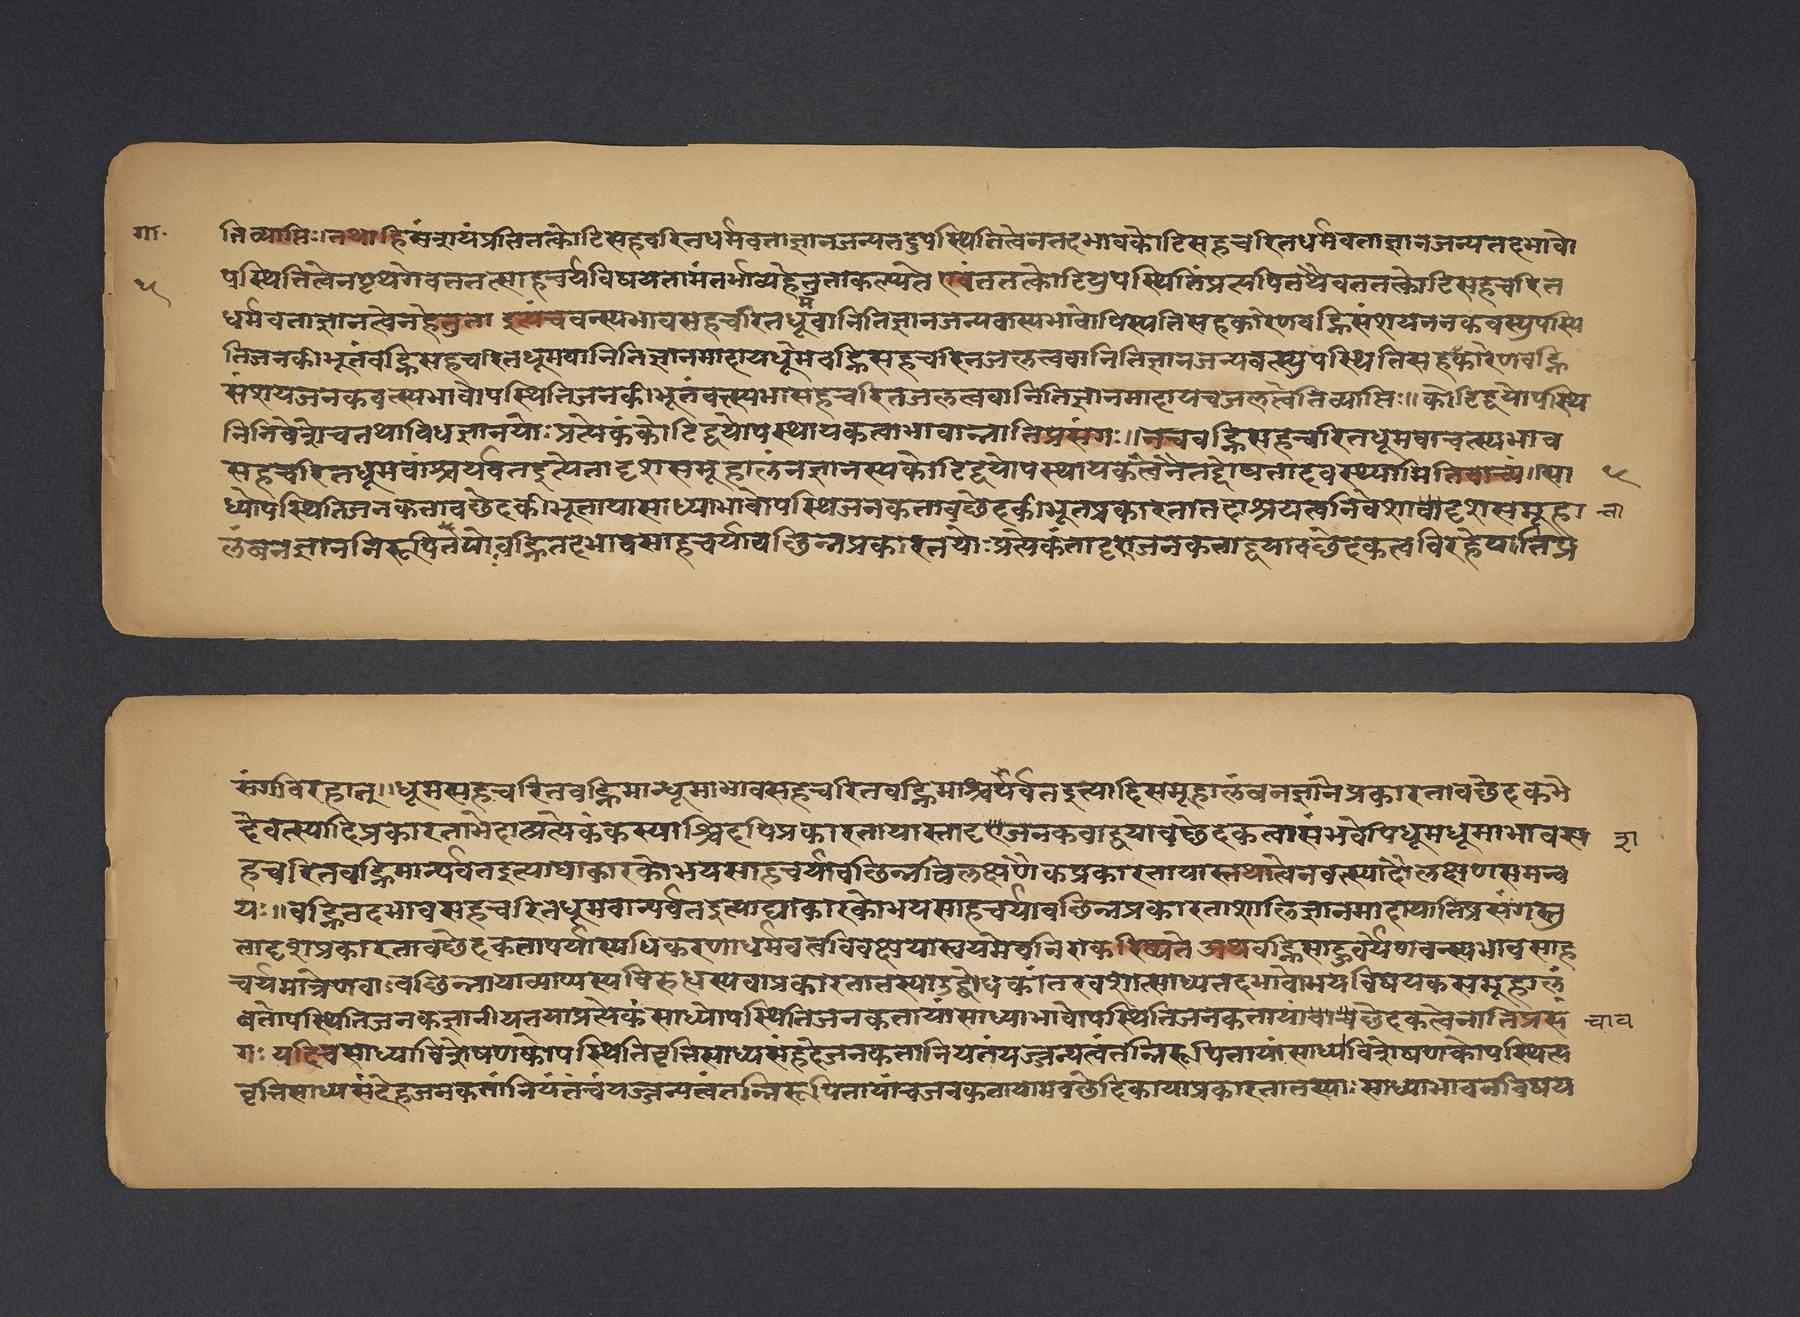 गा.
५
तिव्याप्तिः।तथाहिसंशयंप्रतितत्कोटिसहचरितधर्मवत्ताज्ञानजन्यतदुपस्थितित्वेनतदभावकोटिसहचरितधर्मवत्ताज्ञानजन्यतदभावो
पस्थितित्वेनपृथगेवतत्तत्साहचर्यविषयतामंतर्भाव्यहेतुताकल्प्यते एवंतत्तत्कोट्युपस्थितिंप्रत्यपितथैवतत्तत्कोटिसहचरित
धर्मवत्ताज्ञानत्वेनहेतुता इत्थंचवन्ह्यभावसहचरितधूमवानितिज्ञानजन्यवन्ह्यभावोपस्थितिसहकारेणवह्निसंशयजनकवन्ह्युपस्थि
तिजनकीभूतंवह्निसहचरितधूमवानितिज्ञानमादायधूमेवह्निसहचरितजलत्ववानितिज्ञानजन्यवन्ह्युपस्थितिसहकारेणवह्नि
संशयजनकवन्ह्यभावोपस्थितिजनकीभूतंवन्ह्यभासहचरितजलत्ववानितिज्ञानमादायचजलत्वेतिव्याप्तिः॥कोटिद्वयोपस्थि
तिनिवेशेचतथाविधज्ञानयोःप्रत्येकंकोटिद्वयोपस्थापकत्वाभावान्नातिप्रसंगः॥नचवह्निसहचरितधूमवान्वन्ह्यभाव
सहचरितधूमवांश्चपर्वतइत्येतादृशसमूहालंबनज्ञानस्यकोटिद्वयोपस्थापकत्वेनैतद्दोषतादवस्थ्यमितिवाच्यं॥सा ५
ध्योपस्थितिजनकतावछेदकीभूतायासाध्याभावोपस्थिजनकतावछेदकीभूतप्रकारतातदाश्रयत्वनिवेशात्तादृशसमूहा त्ता
लंबनज्ञाननिरूपितयोर्वह्नितदभावसाहचर्यावछिन्नप्रकारतयोःप्रत्येकंतादृशजनकताद्वयावछेदकत्वविरहेणातिप्र
संगविरहात्॥धूमसहचरितवह्निमान्धूमाभावसहचरितवह्निमांश्चपर्वतइत्यादिसमूहालंबनज्ञानेप्रकारतावछेदकभे
देवन्ह्यादिप्रकारताभेदात्प्रत्येकंकस्याश्चिदपिप्रकारतायास्तादृशजनकताद्वयावछेदकत्वासंभवेपिधूमधूमाभावस शा
हचरितवह्निमान्पर्वतइत्याद्याकारकोभयसाहचर्यावछिन्नविलक्षणैकप्रकारतायास्तथात्वेनवन्ह्यादौलक्षणसमन्व
यः॥वह्नितदभावसहचरितधूमवान्पर्वतइत्याद्याकारकोभयसाहचर्यावछिन्नप्रकारताशालिज्ञानमादायातिप्रसंगस्तु
तादृशप्रकारतावछेदकतापर्याप्त्यधिकरणधर्मवत्वविवक्षयास्वयमेवनिराकरिष्यते अथवह्निसाहचर्येणवन्ह्यभावसाह
चर्यमात्रेणवाऽवछिन्नायाव्याप्यस्यविरुद्धस्यवाप्रकारतातस्याउद्बोधकांतरवशात्साध्यतदभावोभयविषयकसमूहालं
बनोपस्थितिजनकज्ञानीयतयाप्रत्येकंसाध्योपस्थितिजनकतायांसाध्याभावोपस्थितिजनकतायांचावछेदकत्वेनातिप्रसं चाव
गः यदिचसाध्यविशेषणकोपस्थितिवृत्तिसाध्यसंदेहजनकतानियतंयज्जन्यत्वंतन्निरूपितायांसाध्यविशेषणकोपस्थित्य
वृत्तिसाध्यसंदेहजनकतानियतंचयज्जन्यत्वंतन्निरूपितायांचजनकतायामवछेदिकायाप्रकारतातस्याःसाध्याभावनविषय